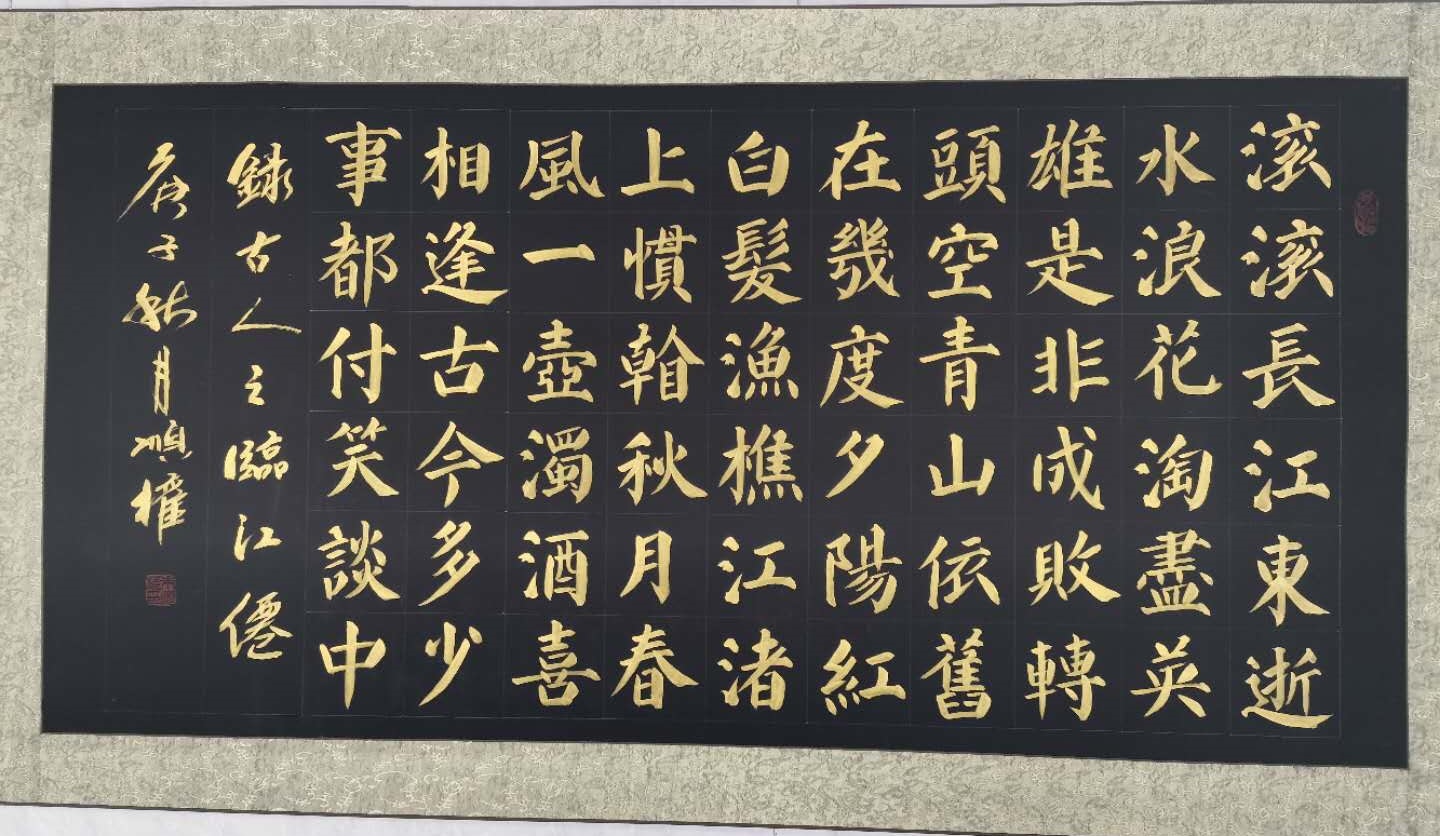 滚滚長江東逝
水浪花淘盡英
雄是非成敗轉
頭空青山依舊
在幾度夕陽紅
白髮漁樵江渚
上慣看秋月春
風一壺濁酒喜
相逢古今多少
事都付笑談中
録古人之臨江僊
庚子秋月順權